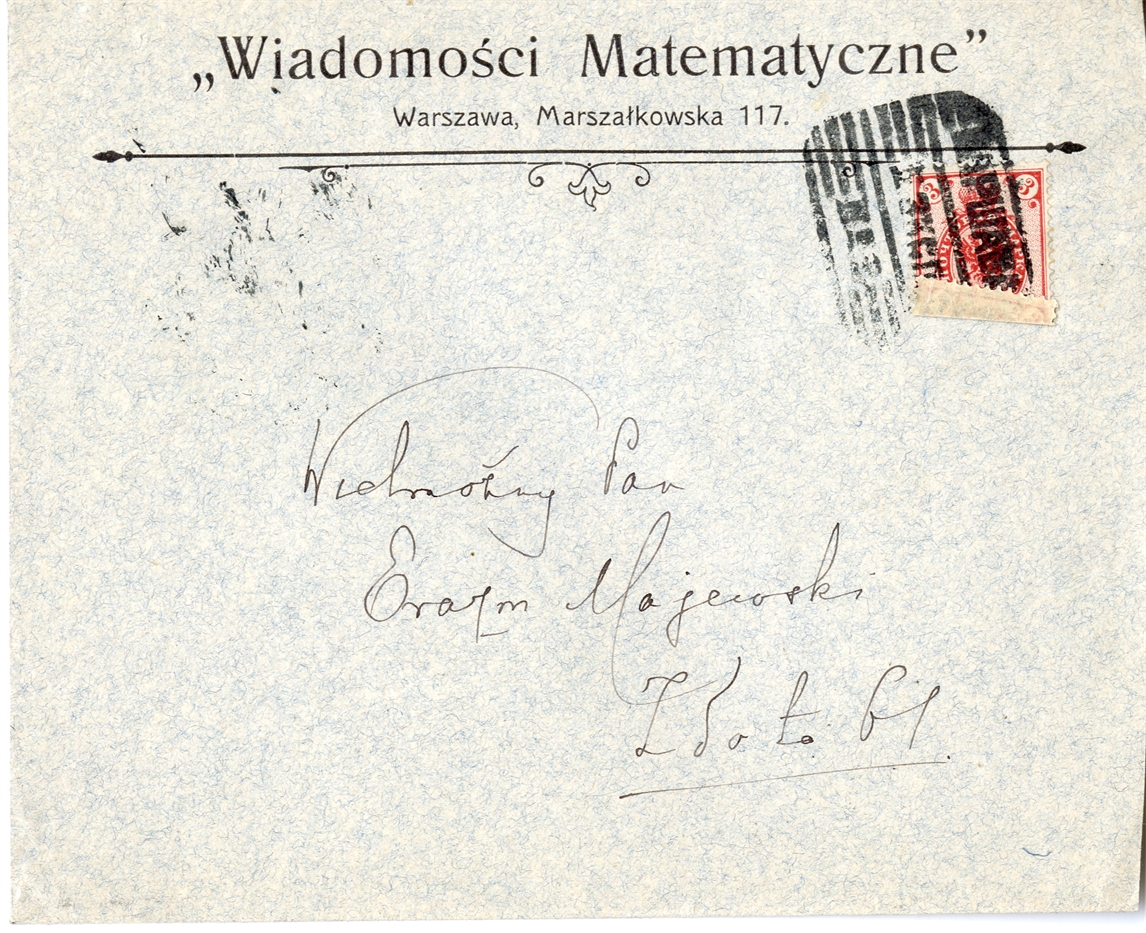 „Wiadomości Matematyczne”
Warszawa, Marszałkowska 117.
3 3
Wielmożny Pan
Erazm Majewski
Złota 61.